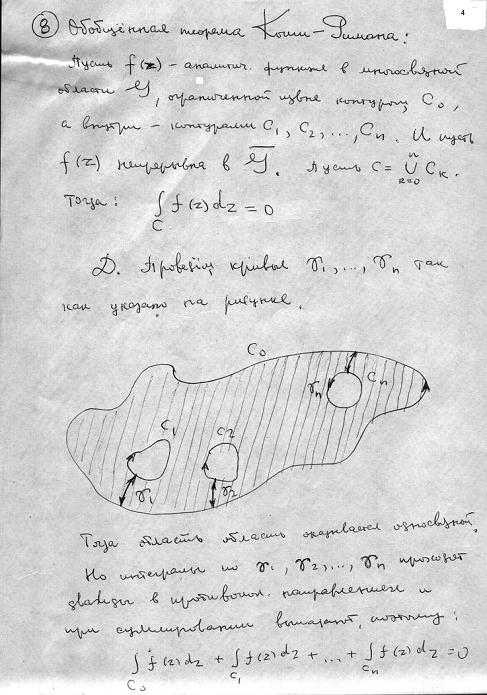 4
⑧ Обобщённая теорема Коши-Римана:
Пусть f(z) - аналитич. функция в многосвязной
области G, ограниченной извне контуром C₀,
а внутри - контурами C₁, C₂, ..., Cₙ. И пусть
f(z) непрерывна в G̅. Пусть C = ⋃ₖ₌₀ⁿ Cₖ.
Тогда: ∫_C f(z) dz = 0
D. Проведём кривые γ₁, ..., γₙ так
как указано на рисунке.
C₀
γₙ Cₙ
C₁ C₂
γ₁ γ₂
Тогда область область окажется односвязной.
Но интегралы по γ₁, γ₂, ..., γₙ проходят
дважды в противопол. направлениях и
при суммировании вылетают, поэтому:
∫_C₀ f(z) dz + ∫_C₁ f(z) dz + ... + ∫_Cₙ f(z) dz = 0